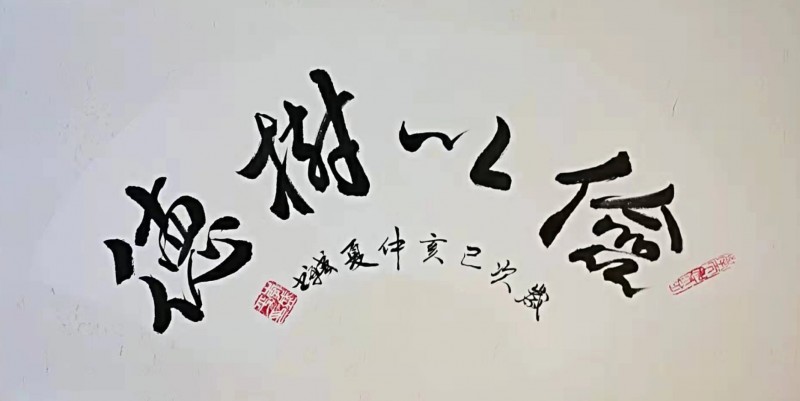 儉以樹德
歲次己亥仲夏